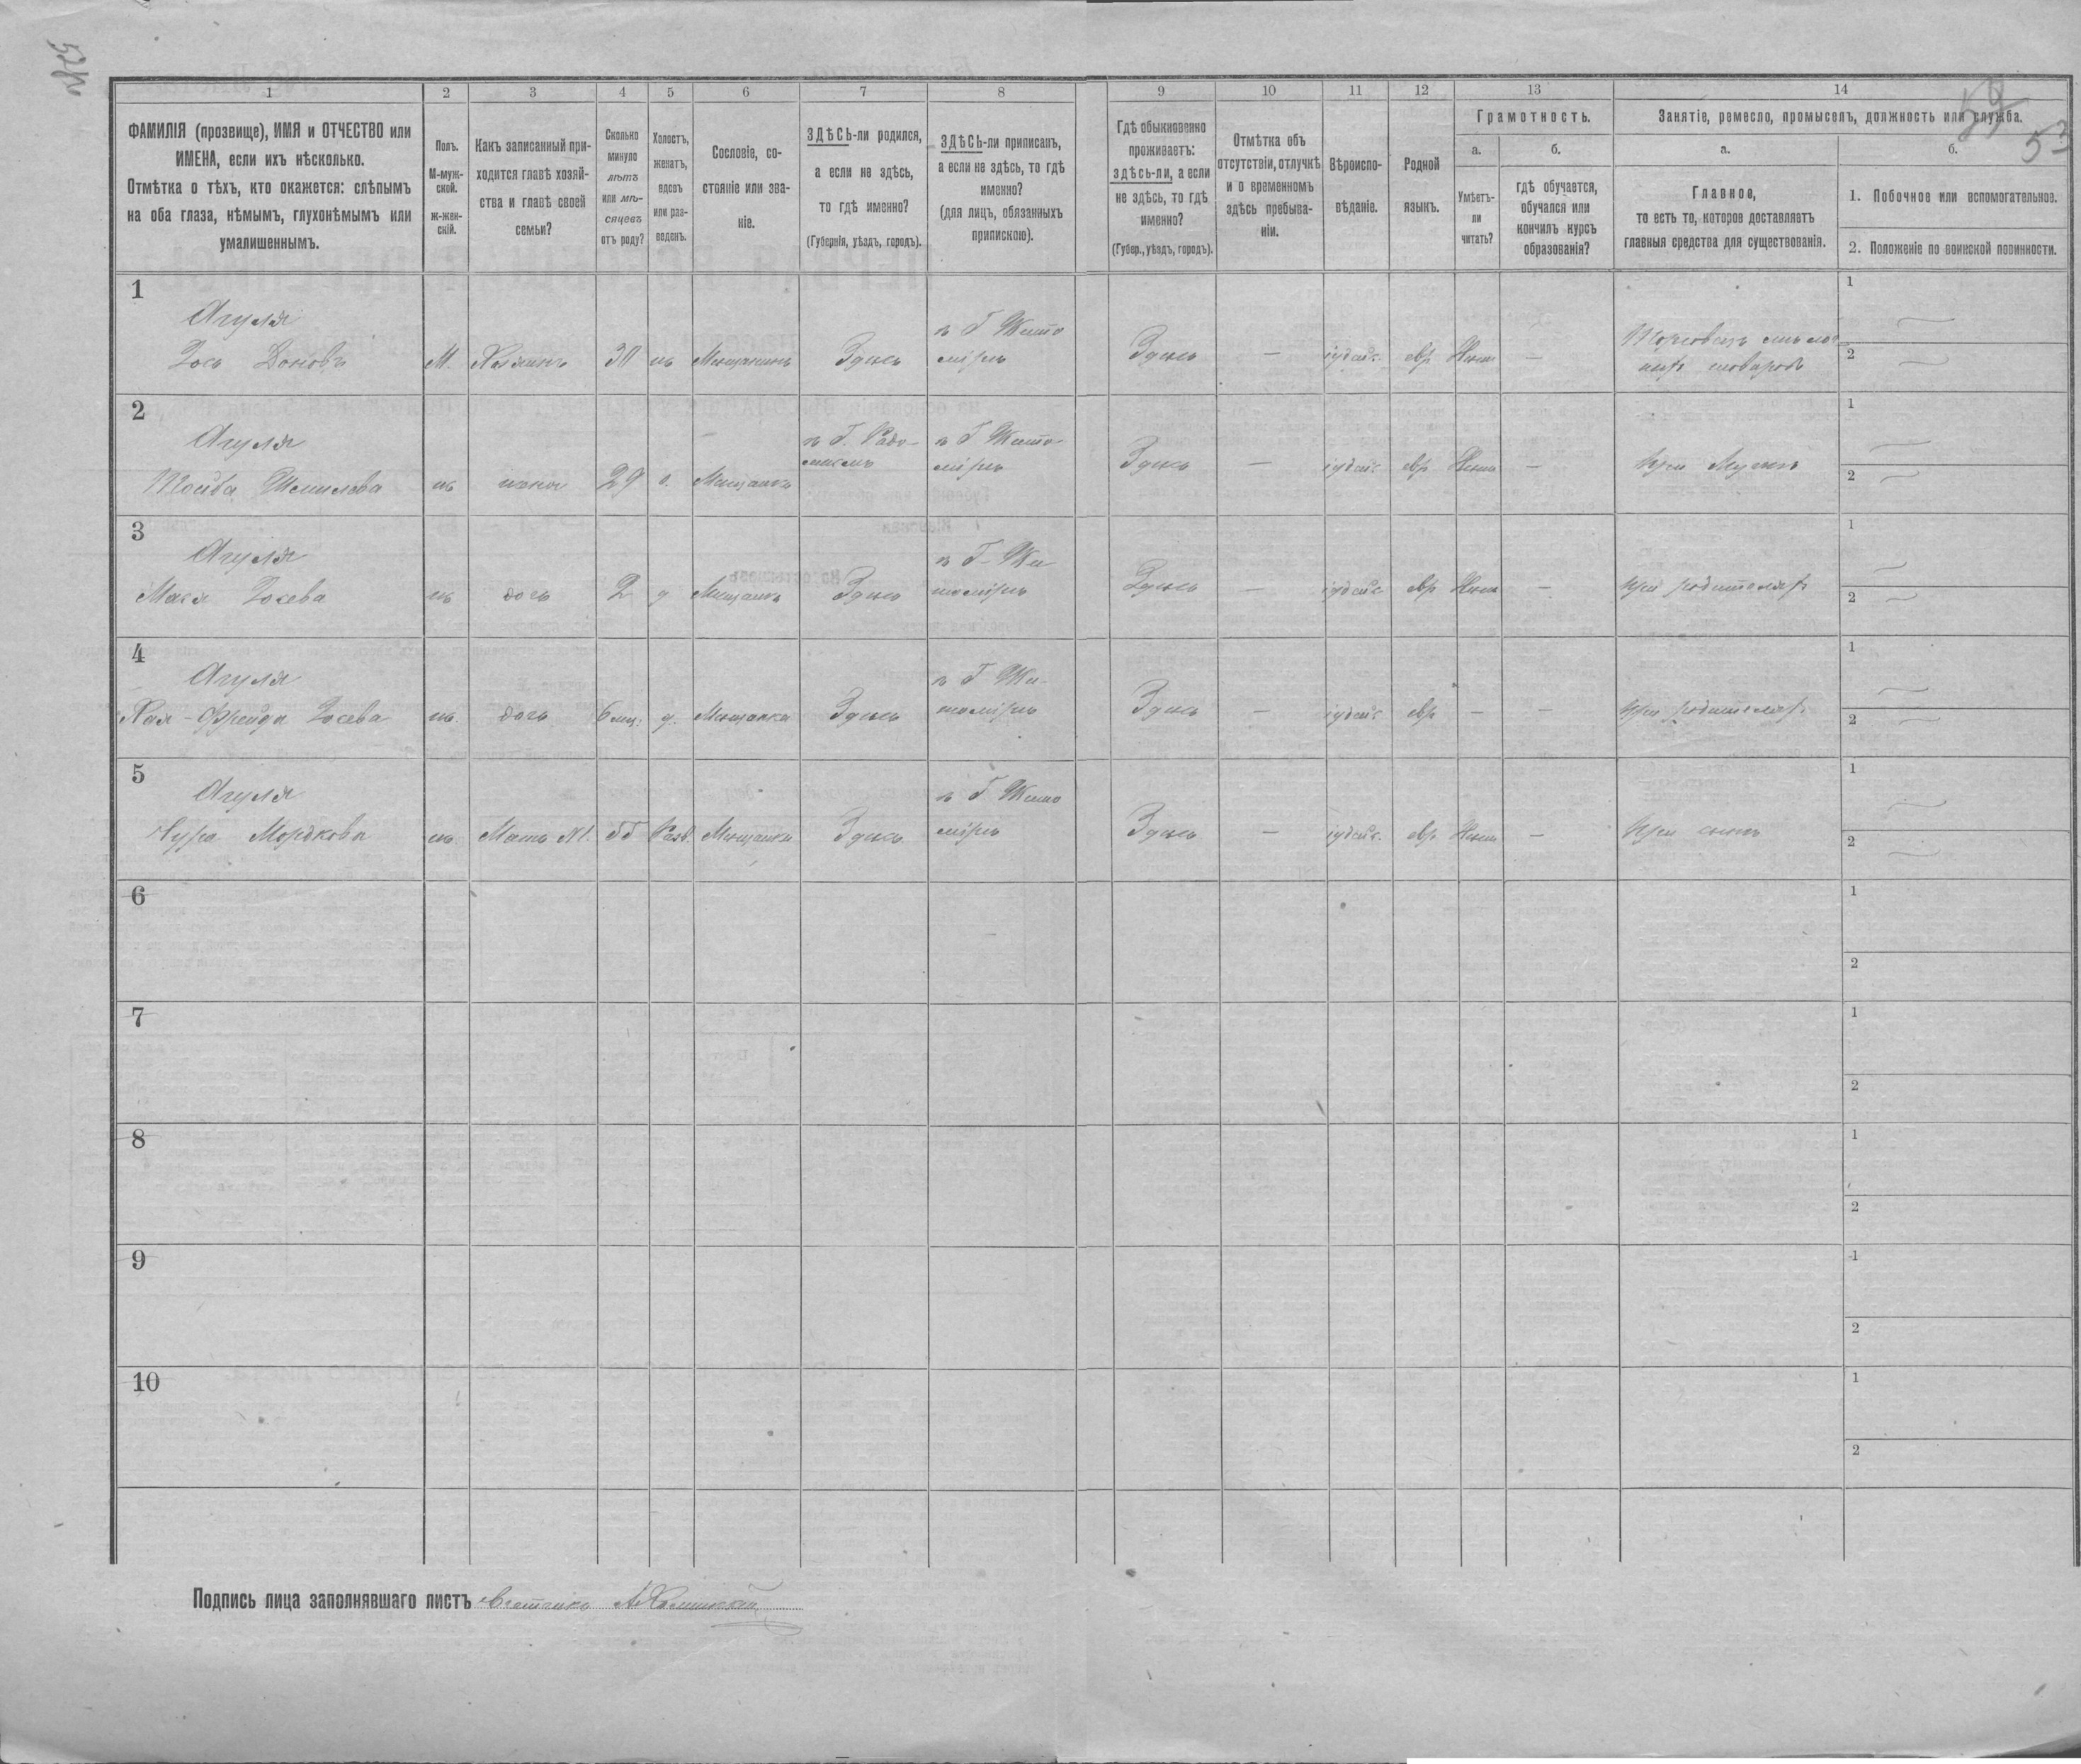 1
2
3
4
5
6
7
8
9
10
11
12
13
14
ФАМИЛІЯ (прозвище), ИМЯ и ОТЧЕСТВО или
ИМЕНА, если ихъ нѣсколько.
Отмѣтка о тѣхъ, кто окажется: слѣпымъ
на оба глаза, нѣмымъ, глухонѣмымъ или
умалишеннымъ.
Полъ.
М-муж-
ской.
ж-жен-
скій.
Какъ записанный при-
ходится главѣ хозяй-
ства и главѣ своей
семьи?
Сколько
минуло
лѣтъ
или мѣ-
сяцевъ
отъ роду?
Холостъ,
женатъ,
вдовъ
или раз-
веденъ.
Сословіе, со-
стояніе или зва-
ніе.
ЗДѢСЬ-ли родился,
а если не здѣсь,
то гдѣ именно?
(Губернія, уѣздъ, городъ).
ЗДѢСЬ-ли приписанъ,
а если не здѣсь, то гдѣ
именно?
(для лицъ, обязанныхъ
припискою).
Гдѣ обыкновенно
проживаетъ:
здѣсь-ли, а если
не здѣсь, то гдѣ
именно?
(Губер., уѣздъ, городъ).
Отмѣтка объ
отсутствіи, отлучкѣ
и о временномъ
здѣсь пребыва-
ніи.
Вѣроиспо-
вѣданіе.
Родной
языкъ.
Грамотность.
а.
б.
Умѣетъ-
ли
читать?
гдѣ обучается,
обучался или
кончилъ курсъ
образованія?
Занятіе, ремесло, промыселъ, должность или служба.
53
а.
б.
Главное,
то есть то, которое доставляетъ
главныя средства для существованія.
1. Побочное или вспомогательное.
2. Положеніе по воинской повинности.
1
Агуля
М. Хозяинъ 30 ж Мещанинъ Здѣсь
в Г Жито
міръ
Здѣсь — іудейс. евр Нетъ —
1
2
2
Агуля
Тойба Шмилева ж жена 29 з. Мещанка
в Г. Радо-
мислъ
в Г Жито-
міръ
Здѣсь — іудейс евр Нетъ —
при Мужѣ
1
2
3
Агуля
Мася Іосева ж дочь 2 д Мещанка Здѣсь
в Г. Жи
томіръ
Здѣсь — іудейс евр Нетъ —
при родителях
1
2
4
Агуля
Хая-Фрейда Іосева ж. дочь 6 мц. д. Мещанка Здѣсь
в Г Жи-
томіръ
Здѣсь — іудейс евр — —
при родителях
1
2
5
Агуля
Сура Мордкова ж Мать №1. 55 Разв. Мещанка Здѣсь
в Г Жито
міръ
Здѣсь — іудейс. евр. Нетъ —
при сынѣ
1
2
6
1
2
7
1
2
8
1
2
9
1
2
10
1
2
Подпись лица заполнявшаго листъ